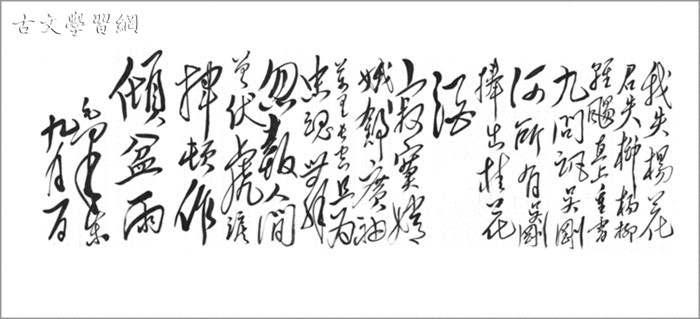 古文學習網
我失楊花
君失柳楊柳
輕颺直上重霄
九問訊吳剛
何所有吳剛
捧出桂花
酒
寂寞嫦
娥舒廣袖
萬里長空且為
忠魂舞
忽報人間
曾伏虎淚
揮頓作
傾盆雨
毛澤東
九月一日